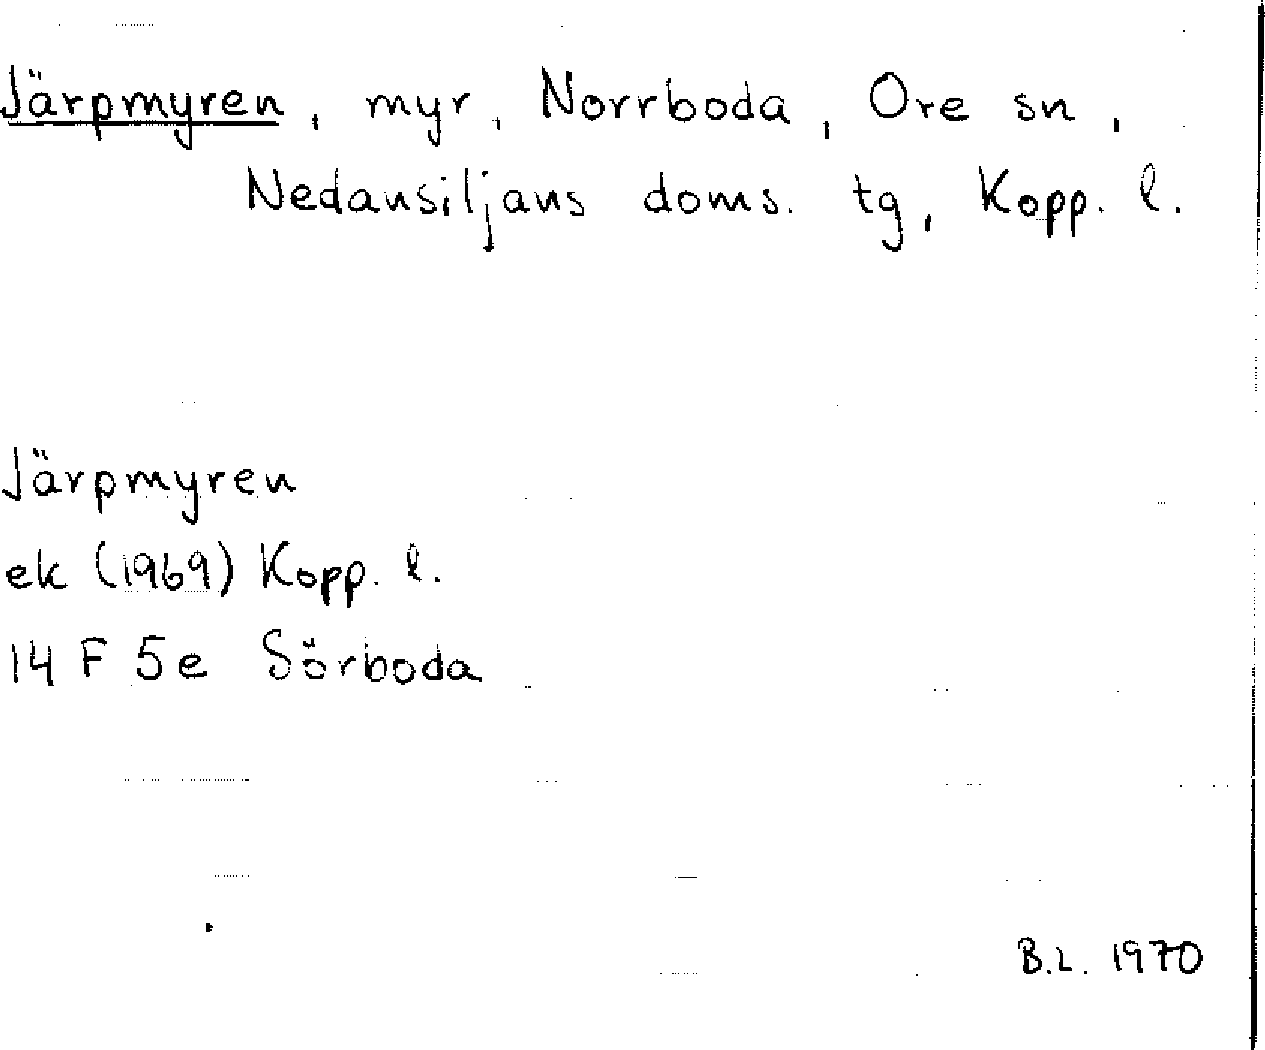 Järpmyren, myr, Norrboda, Ore sn,
Nedansiljans doms. tg, Kopp. l.
Järpmyren
ek (1969) Kopp. l.
14 F 5e Sörboda
B.L. 1970